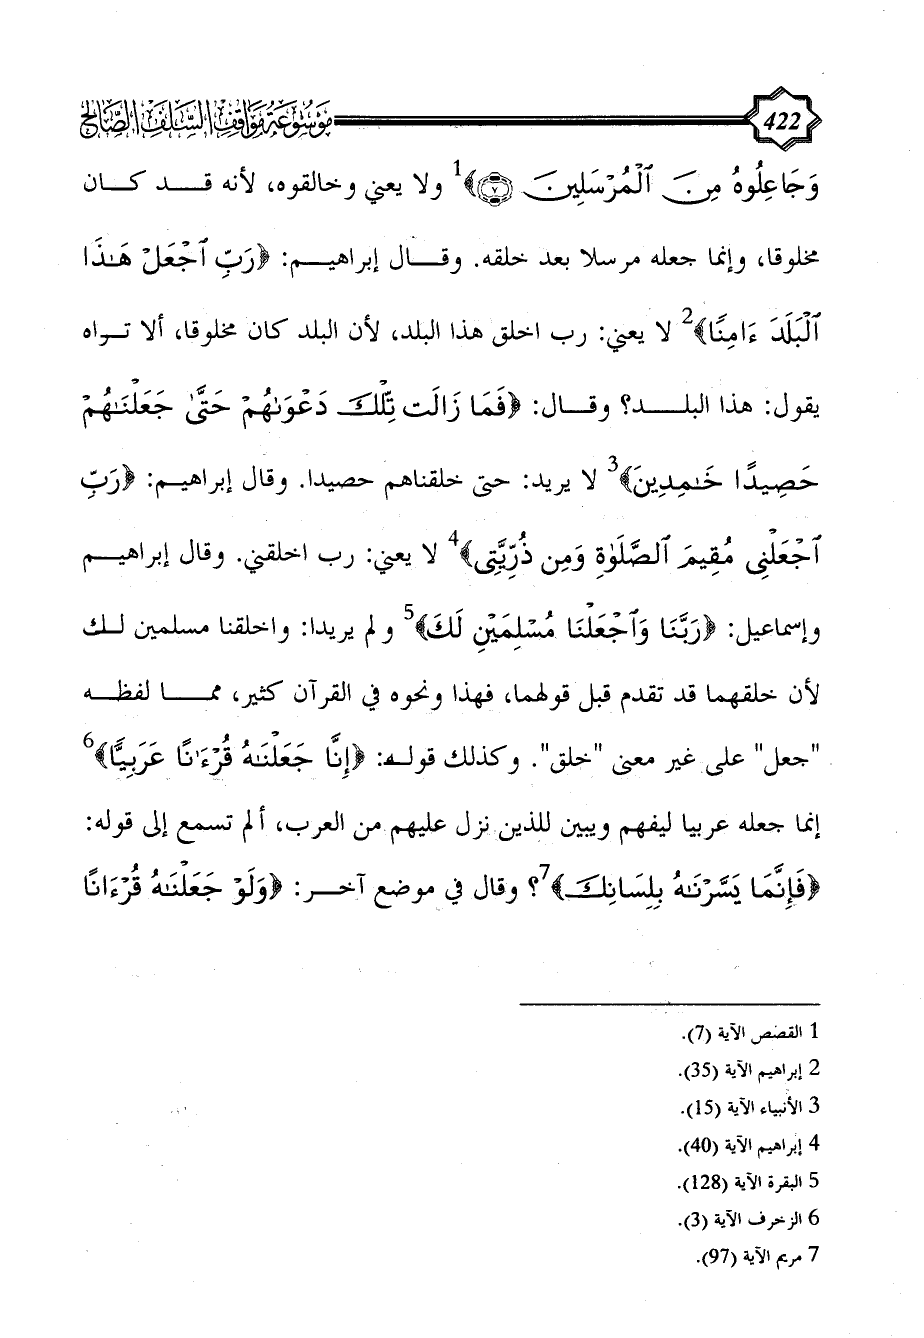 422
موسوعة مواقف السلف الصالح
وَجَاعِلُوهُ مِنَ ٱلْمُرْسَلِينَ ٧﴾1 ولا يعني وخالقوه، لأنه قد كان
مخلوقا، وإنما جعله مرسلا بعد خلقه. وقال إبراهيم: ﴿رَبِّ ٱجْعَلْ هَٰذَا
ٱلْبَلَدَ ءَامِنًا﴾2 لا يعني: رب اخلق هذا البلد، لأن البلد كان مخلوقا، ألا تراه
يقول: هذا البلد؟ وقال: ﴿فَمَا زَالَت تِّلْكَ دَعْوَىٰهُمْ حَتَّىٰ جَعَلْنَٰهُمْ
حَصِيدًا خَٰمِدِينَ﴾3 لا يريد: حتى خلقناهم حصيدا. وقال إبراهيم: ﴿رَبِّ
ٱجْعَلْنِى مُقِيمَ ٱلصَّلَوٰةِ وَمِن ذُرِّيَّتِى﴾4 لا يعني: رب اخلقني. وقال إبراهيم
وإسماعيل: ﴿رَبَّنَا وَٱجْعَلْنَا مُسْلِمَيْنِ لَكَ﴾5 ولم يريدا: واخلقنا مسلمين لك
لأن خلقهما قد تقدم قبل قولهما، فهذا ونحوه في القرآن كثير، مما لفظه
"جعل" على غير معنى "خلق". وكذلك قوله: ﴿إِنَّا جَعَلْنَٰهُ قُرْءَٰنًا عَرَبِيًّا﴾6
إنما جعله عربيا ليفهم ويبين للذين نزل عليهم من العرب، ألم تسمع إلى قوله:
﴿فَإِنَّمَا يَسَّرْنَٰهُ بِلِسَانِكَ﴾7؟ وقال في موضع آخر: ﴿وَلَوْ جَعَلْنَٰهُ قُرْءَانًا
1 القصص الآية (7).
2 إبراهيم الآية (35).
3 الأنبياء الآية (15).
4 إبراهيم الآية (40).
5 البقرة الآية (128).
6 الزخرف الآية (3).
7 مريم الآية (97).